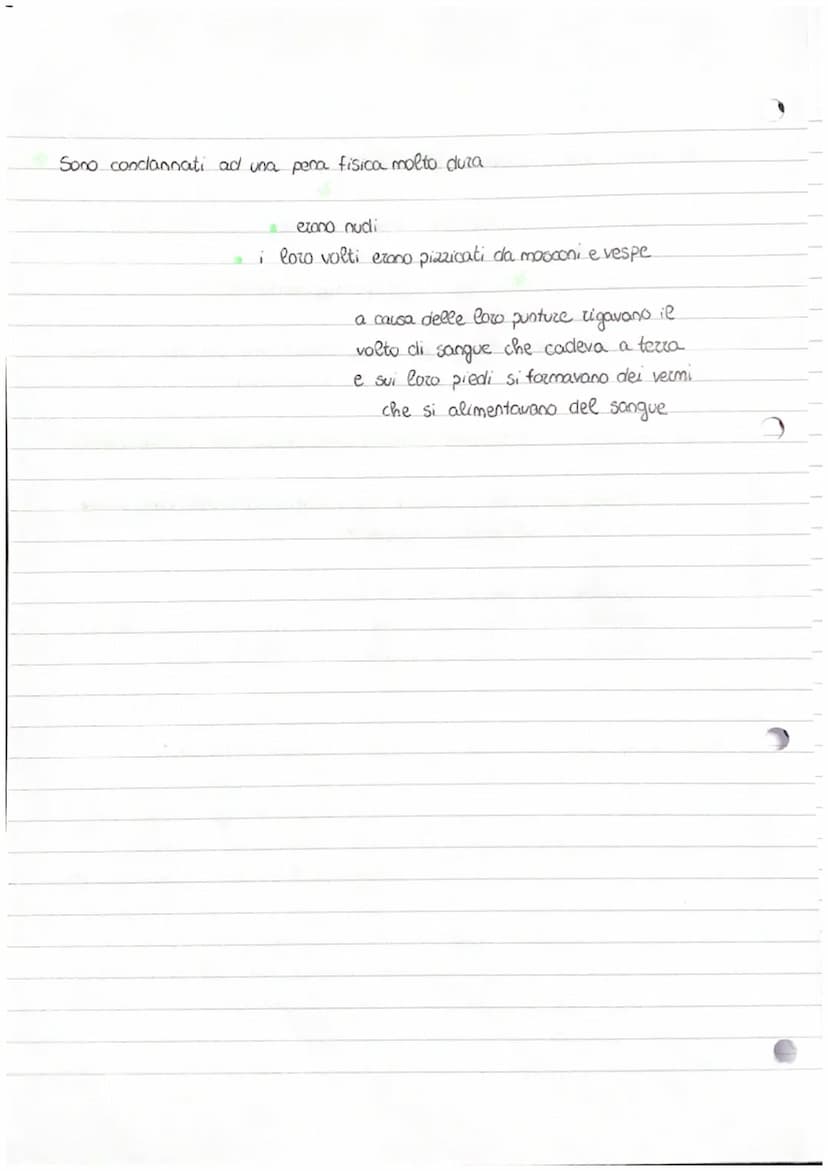 Sono condannati ad una pena fisica molto dura
erano nudi
i loro volti erano pizzicati da mosconi e vespe
a causa delle loro punture rigavano il
volto di sangue che cadeva a terra
e sui loro piedi si formavano dei vermi
che si alimentavano del sangue